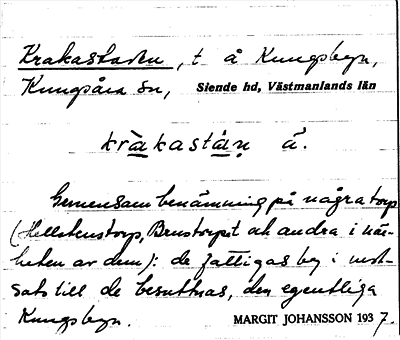 Krakastaden, t. å Kungsbyn,
Kungsåra sn, Siende hd, Västmanlands län
krakastan å.
Gemensam benämning på några torp
(Hellstenstorp, Brustorpet och andra i när-
heten av dem): de fattigas by i mot-
sats till de besuttnas, den egentliga
Kungsbyn. MARGIT JOHANSSON 1937.